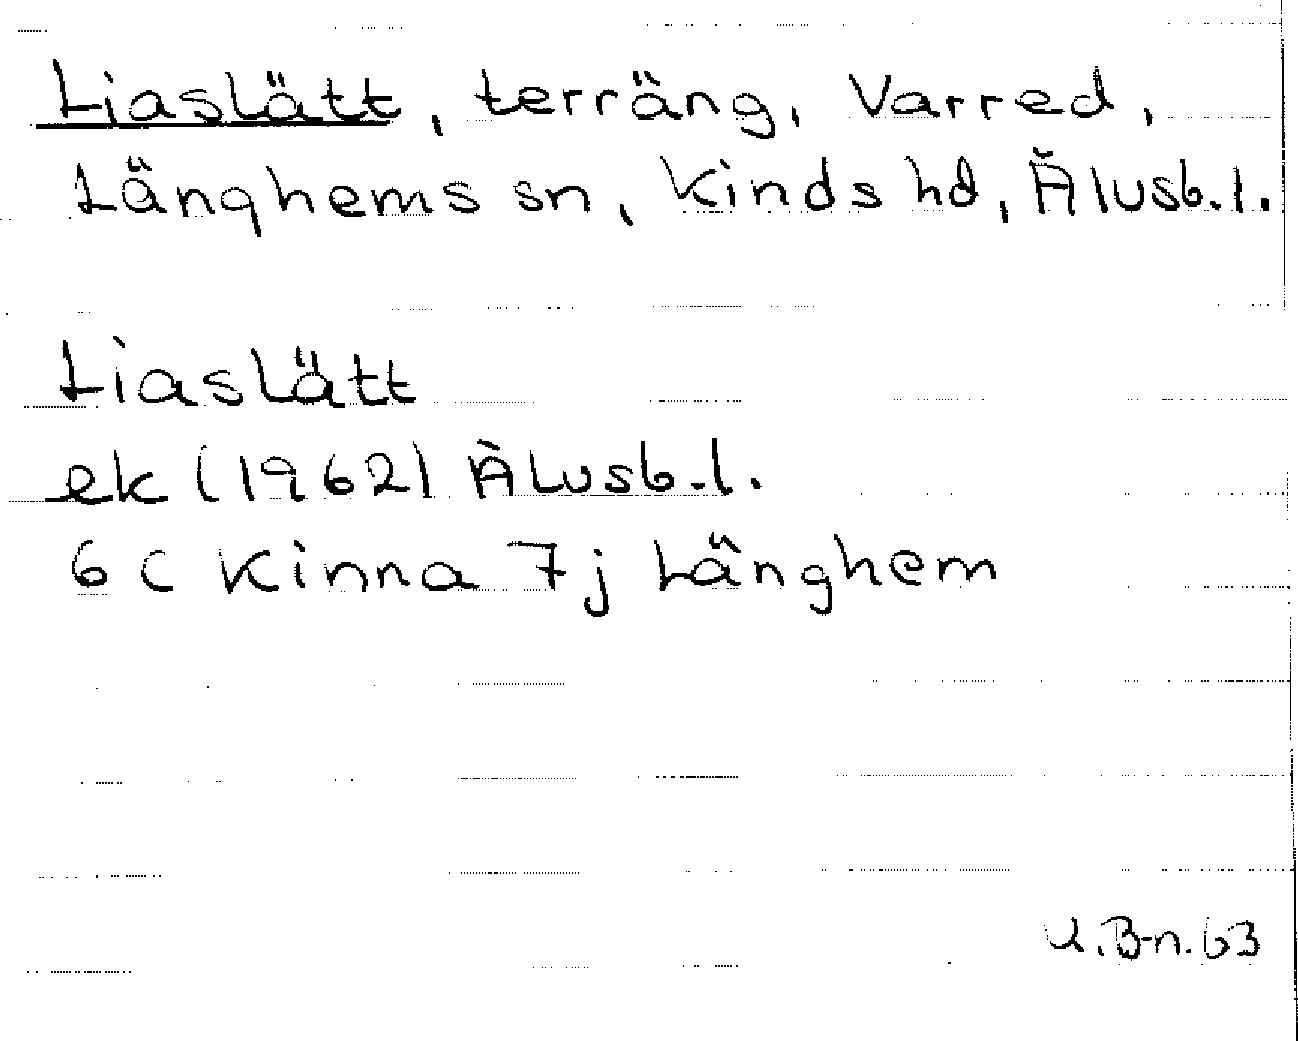 Liaslätt, terräng, Varred,
Länghems sn, Kinds hd, Älvsb.l.
Liaslätt
ek (1962) Älvsb.l.
6 C Kinna 7j Länghem
U.B-n. 63